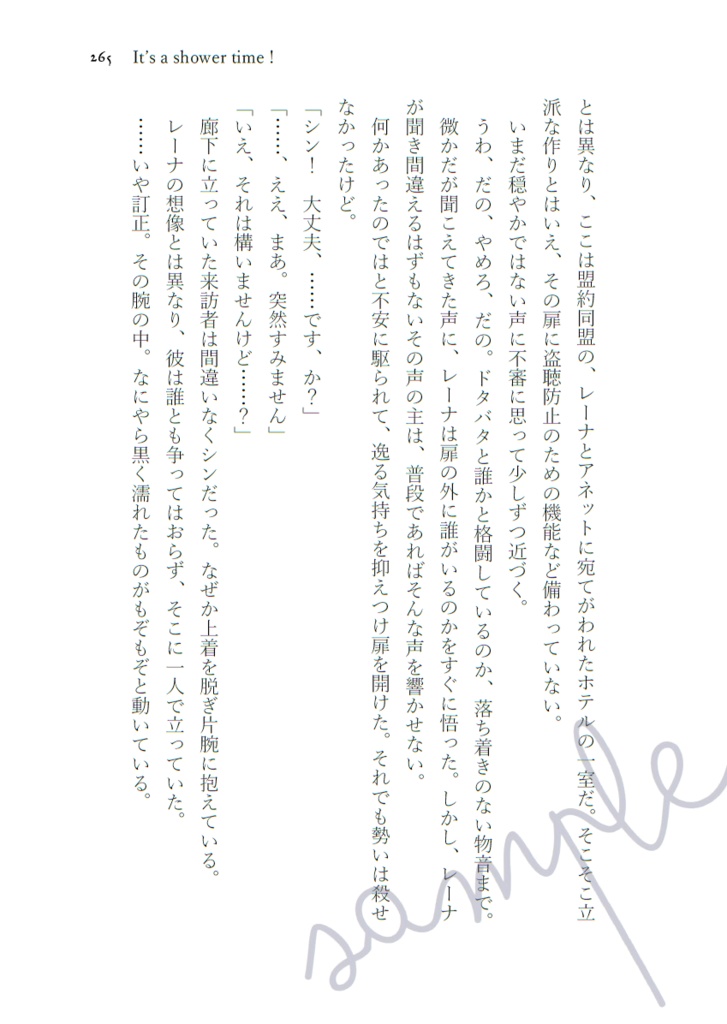 265 It's a shower time !
とは異なり、ここは盟約同盟の、レーナとアネットに宛てがわれたホテルの一室だ。そこそこ立
派な作りとはいえ、その扉に盗聴防止のための機能など備わっていない。
いまだ穏やかではない声に不審に思って少しずつ近づく。
うわ、だの、やめろ、だの。ドタバタと誰かと格闘しているのか、落ち着きのない物音まで。
微かだが聞こえてきた声に、レーナは扉の外に誰がいるのかをすぐに悟った。しかし、レーナ
が聞き間違えるはずもないその声の主は、普段であればそんな声を響かせない。
何かあったのではと不安に駆られて、逸る気持ちを抑えつけ扉を開けた。それでも勢いは殺せ
なかったけど。
「シン！　大丈夫、……です、か？」
「……、ええ、まあ。突然すみません」
「いえ、それは構いませんけど……？」
廊下に立っていた来訪者は間違いなくシンだった。なぜか上着を脱ぎ片腕に抱えている。
レーナの想像とは異なり、彼は誰とも争ってはおらず、そこに一人で立っていた。
……いや訂正。その腕の中。なにやら黒く濡れたものがもぞもぞと動いている。
sample